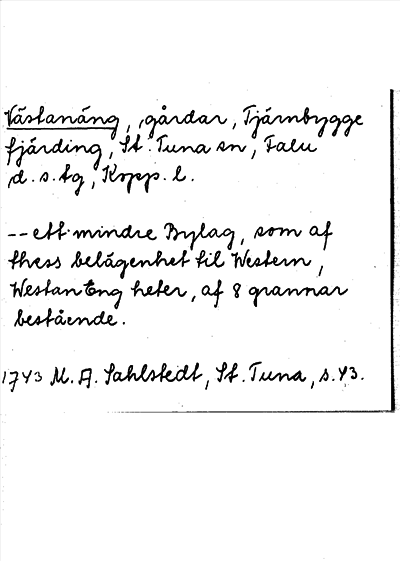 Västanäng, gårdar, Tjärnbygge
fjärding, St. Tuna sn, Falu
d.s.tg, Kopp. l.
-- ett mindre Bylag, som af
thess belägenhet til Western,
WestanEng heter, af 8 grannar
bestående.
1743 M. A. Sahlstedt, St. Tuna, s. 43.